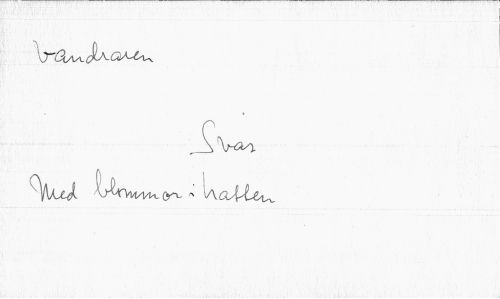 Vandraren
Svar
Med blommor i hatten